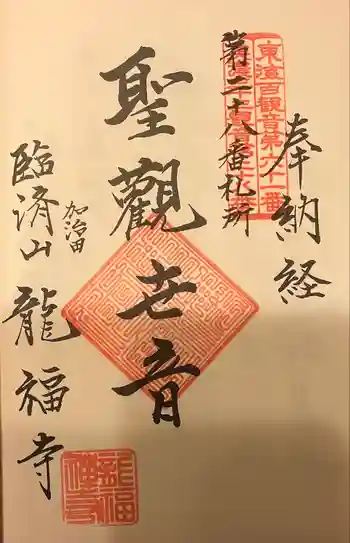 奉納経
第二十八番札所
東海百観音第六十一番
聖觀世音
加治田
臨済山龍福寺
龍福禅寺